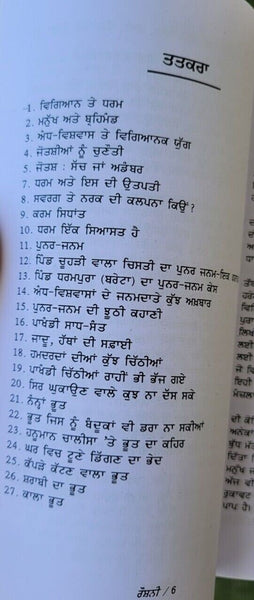 ਤਤਕਰਾ
1. ਵਿਗਿਆਨ ਤੇ ਧਰਮ
2. ਮਨੁੱਖ ਅਤੇ ਬ੍ਰਹਿਮੰਡ
3. ਅੰਧ-ਵਿਸ਼ਵਾਸ ਤੇ ਵਿਗਿਆਨਕ ਯੁੱਗ
4. ਜੋਤਸ਼ੀਆਂ ਨੂੰ ਚੁਣੌਤੀ
5. ਜੋਤਸ਼ : ਸੱਚ ਜਾਂ ਅਡੰਬਰ
7. ਧਰਮ ਅਤੇ ਇਸ ਦੀ ਉਤਪਤੀ
8. ਸਵਰਗ ਤੇ ਨਰਕ ਦੀ ਕਲਪਨਾ ਕਿਉਂ?
9. ਕਰਮ ਸਿਧਾਂਤ
10. ਧਰਮ ਇੱਕ ਸਿਆਸਤ ਹੈ
11. ਪੁਨਰ-ਜਨਮ
12. ਪਿੰਡ ਚੂਹੜੀ ਵਾਲਾ ਚਿਸਤੀ ਦਾ ਪੁਨਰ ਜਨਮ-ਇਕ
13. ਪਿੰਡ ਧਰਮਪੁਰਾ (ਬਰੇਟਾ) ਦਾ ਪੁਨਰ-ਜਨਮ ਕੇਸ
14. ਅੰਧ-ਵਿਸ਼ਵਾਸਾਂ ਦੇ ਜਨਮਦਾਤੇ ਕੁੱਝ ਅਖ਼ਬਾਰ
15. ਪੁਨਰ-ਜਨਮ ਦੀ ਝੂਠੀ ਕਹਾਣੀ
16. ਪਾਖੰਡੀ ਸਾਧ-ਸੰਤ
17. ਜਾਦੂ, ਹੱਥਾਂ ਦੀ ਸਫ਼ਾਈ
18. ਹਮਦਰਦਾਂ ਦੀਆਂ ਕੁੱਝ ਚਿੱਠੀਆਂ
19. ਪਾਖੰਡੀ ਚਿੱਠੀਆਂ ਰਾਹੀਂ ਭੀ ਭੱਜ ਗਏ
20. ਸਿਰ ਘੁਕਾਉਣ ਵਾਲੇ ਕੁਝ ਨਾ ਦੱਸ ਸਕੇ
21. ਨੰਨ੍ਹਾਂ ਭੂਤ
22. ਭੂਤ ਜਿਸ ਨੂੰ ਬੰਦੂਕਾਂ ਵੀ ਡਰਾ ਨਾ ਸਕੀਆਂ
23. ਹਨੂਮਾਨ ਚਾਲੀਸਾ 'ਤੇ ਭੂਤ ਦਾ ਕਹਿਰ
24. ਘਰ ਵਿਚ ਟੂਣੇ ਡਿੱਗਣ ਦਾ ਭੇਦ
25. ਕੱਪੜੇ ਕੱਟਣ ਵਾਲਾ ਭੂਤ
26. ਸ਼ਰਾਬੀ ਦਾ ਭੂਤ
27. ਕਾਲਾ ਭੂਤ
ਰੌਸ਼ਨੀ / 6